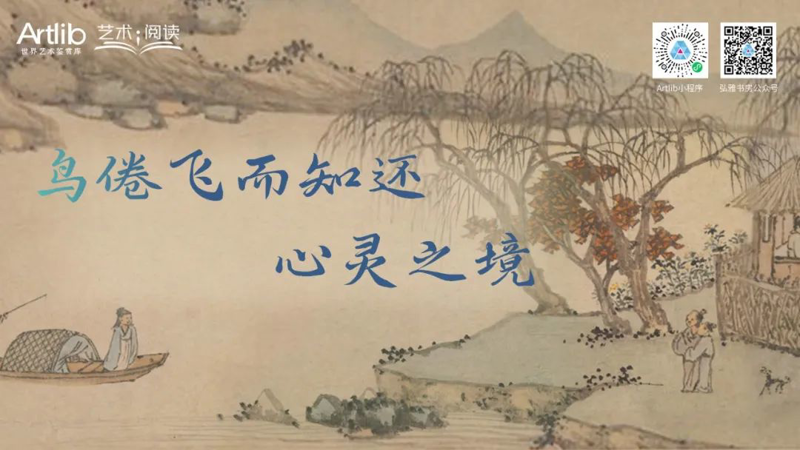 Artlib 艺术;阅读
世界艺术鉴赏库
Artlib小程序
弘雅书房公众号
鸟倦飞而知还
心灵之境